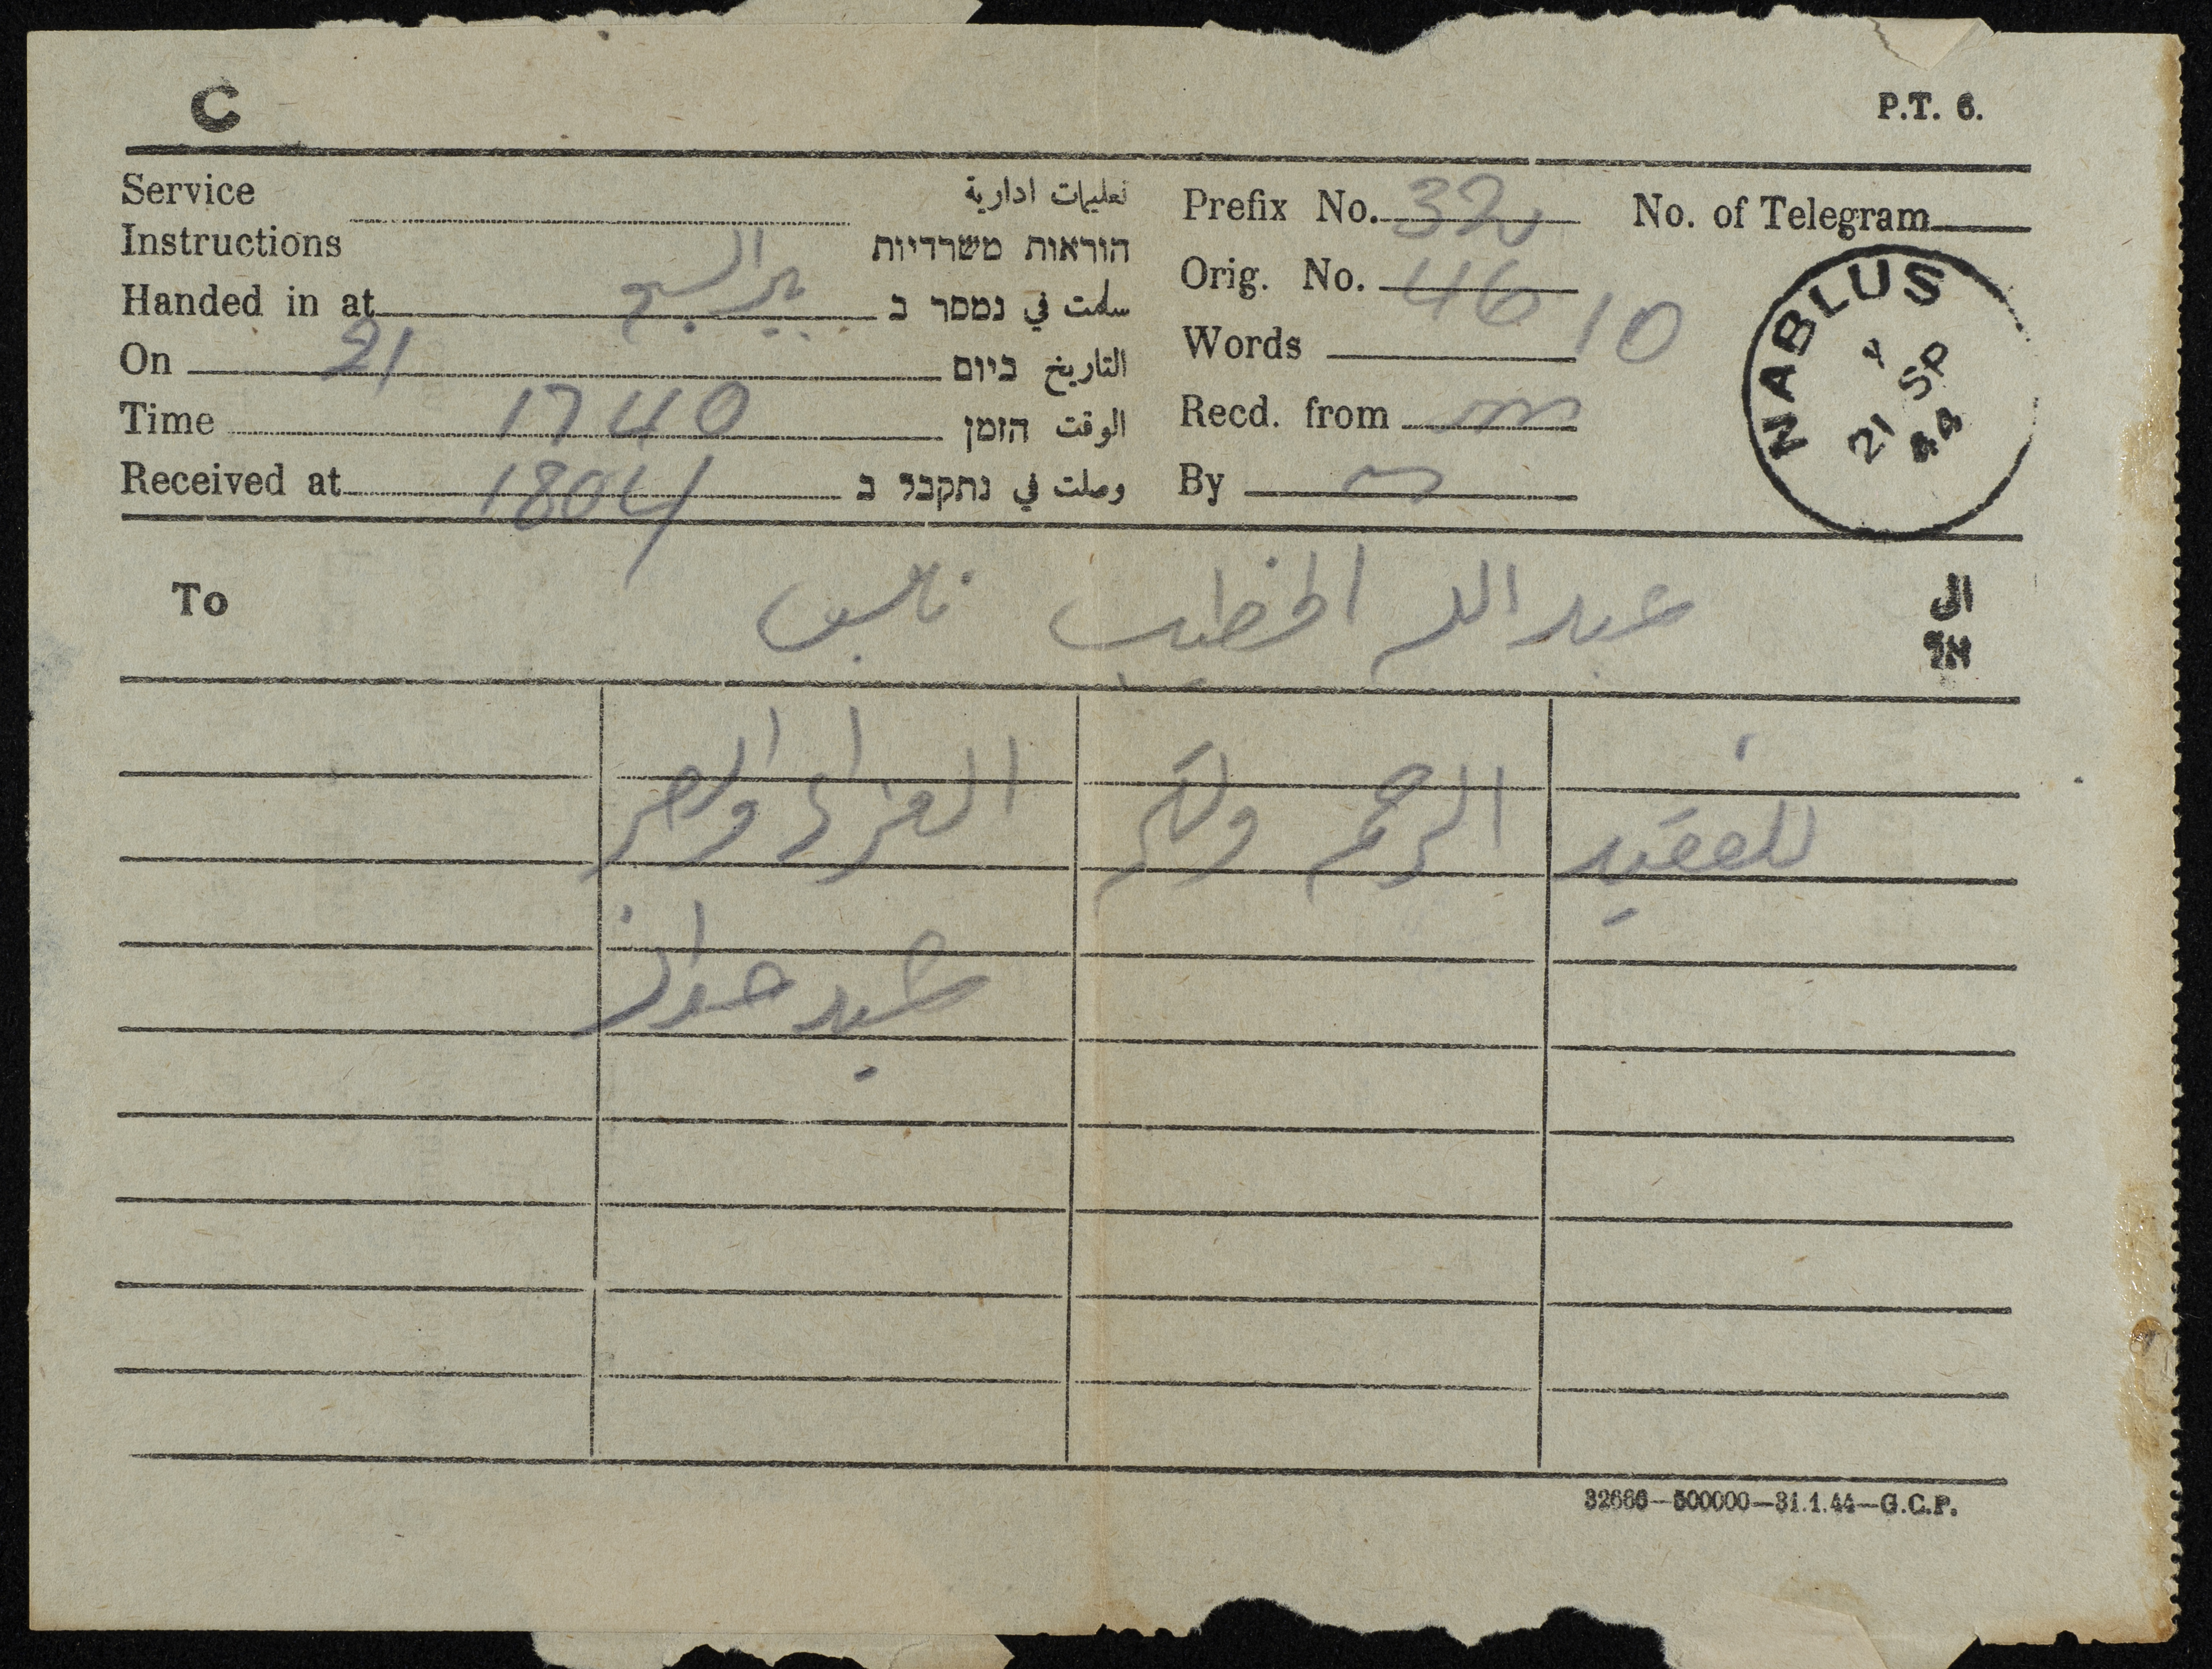 C
P.T. 6.
Service تعليمات ادارية
Instructions הוראות משרדיות
Handed in at بير السبع سلمت في נמסר ב
On 21 التاريخ ביום
Time 1740 الوقت הזמן
Received at 1804 وصلت في נתקבל ב
Prefix No. 32 No. of Telegram
Orig. No. 46
Words 10
Recd. from
By
NABLUS
21 SP
44
To عبد الله الخطيب نابلس الى
אל
للفقيد الرحمة ولكم العزاء والصبر
32686—500000—31.1.44—G.C.P.